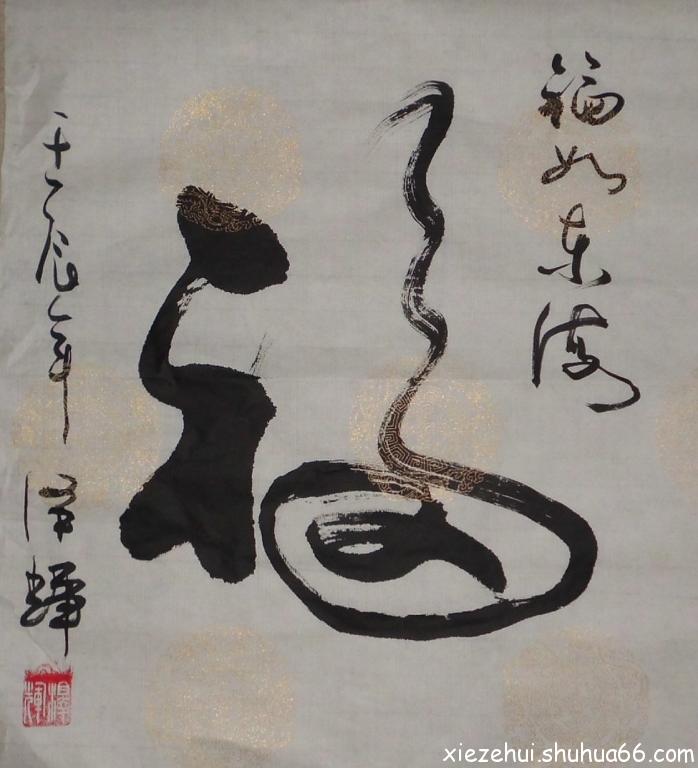 福如东海
福
壬辰年
泽辉
泽辉
xiezehui.shuhua66.com